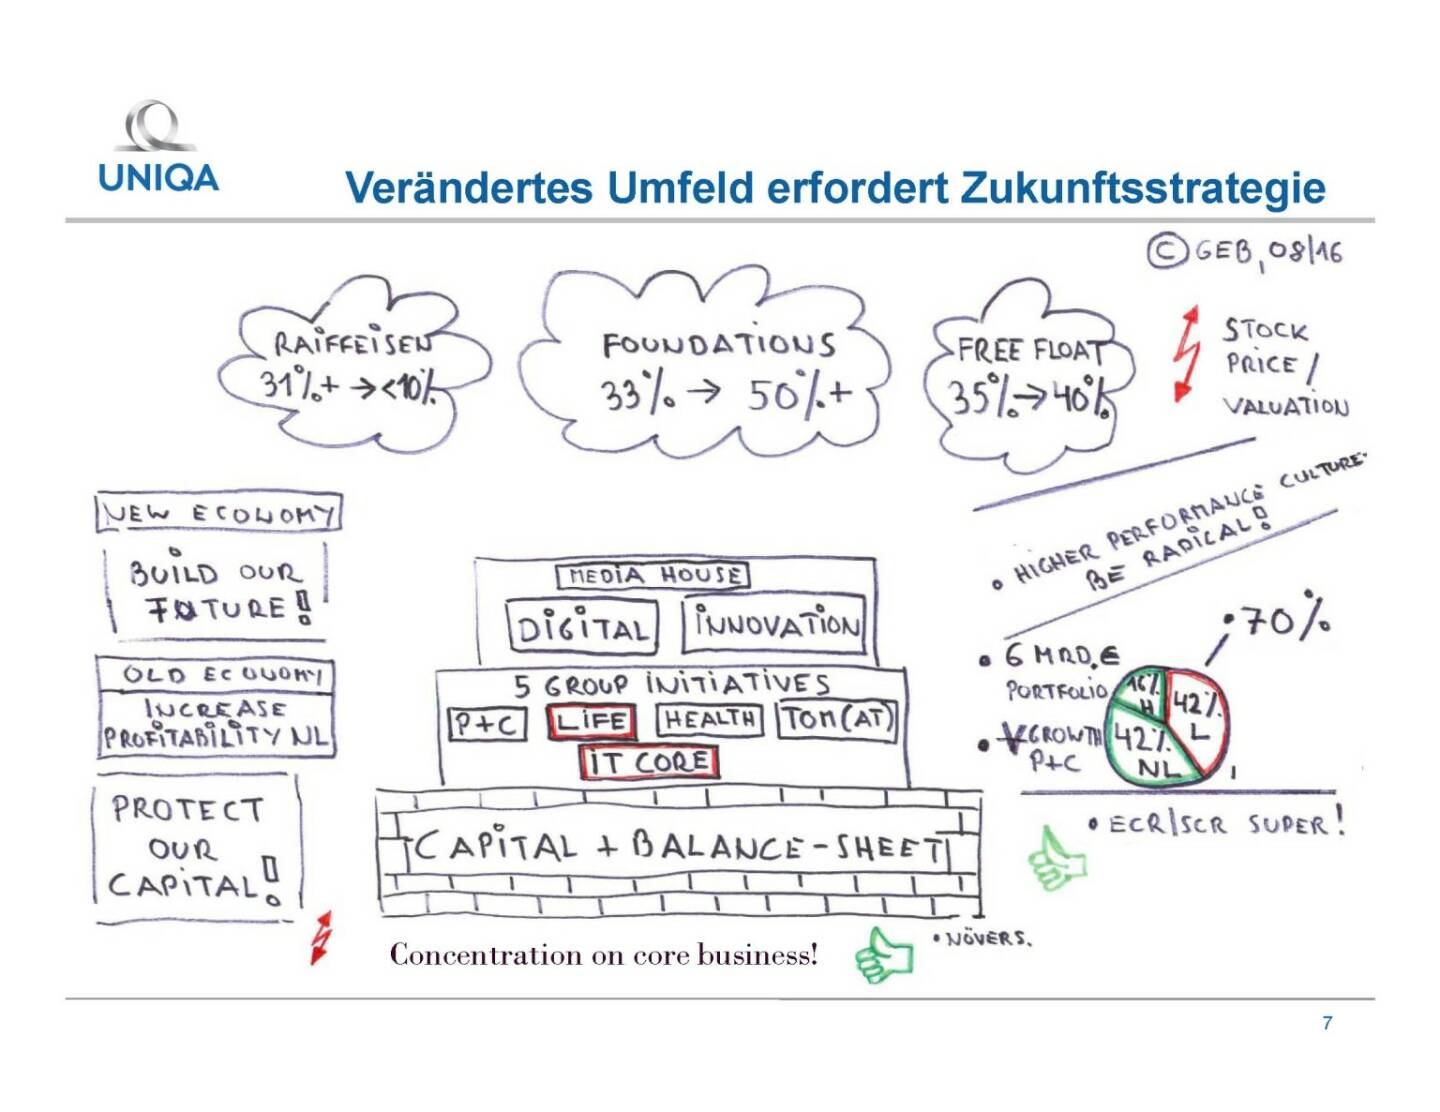 UNIQA
Verändertes Umfeld erfordert Zukunftsstrategie
© GEB, 08/16
RAIFFEISEN
31%+ → <10%
FOUNDATIONS
33% → 50%+
FREE FLOAT
35% → 40%
STOCK
PRICE /
VALUATION
• HIGHER PERFORMANCE CULTURE
BE RADICAL!
NEW ECONOMY
BUILD OUR
FUTURE!
OLD ECONOMY
INCREASE
PROFITABILITY NL
PROTECT
OUR
CAPITAL!
MEDIA HOUSE
DIGITAL
INNOVATION
5 GROUP INITIATIVES
P+C
LIFE
HEALTH
TOM(AT)
IT CORE
CAPITAL + BALANCE-SHEET
• 70%
• 6 MRD. €
PORTFOLIO
• GROWTH
P+C
16%
H
42%
L
42%
NL
• ECR/SCR SUPER!
Concentration on core business!
• NÖVERS.
7